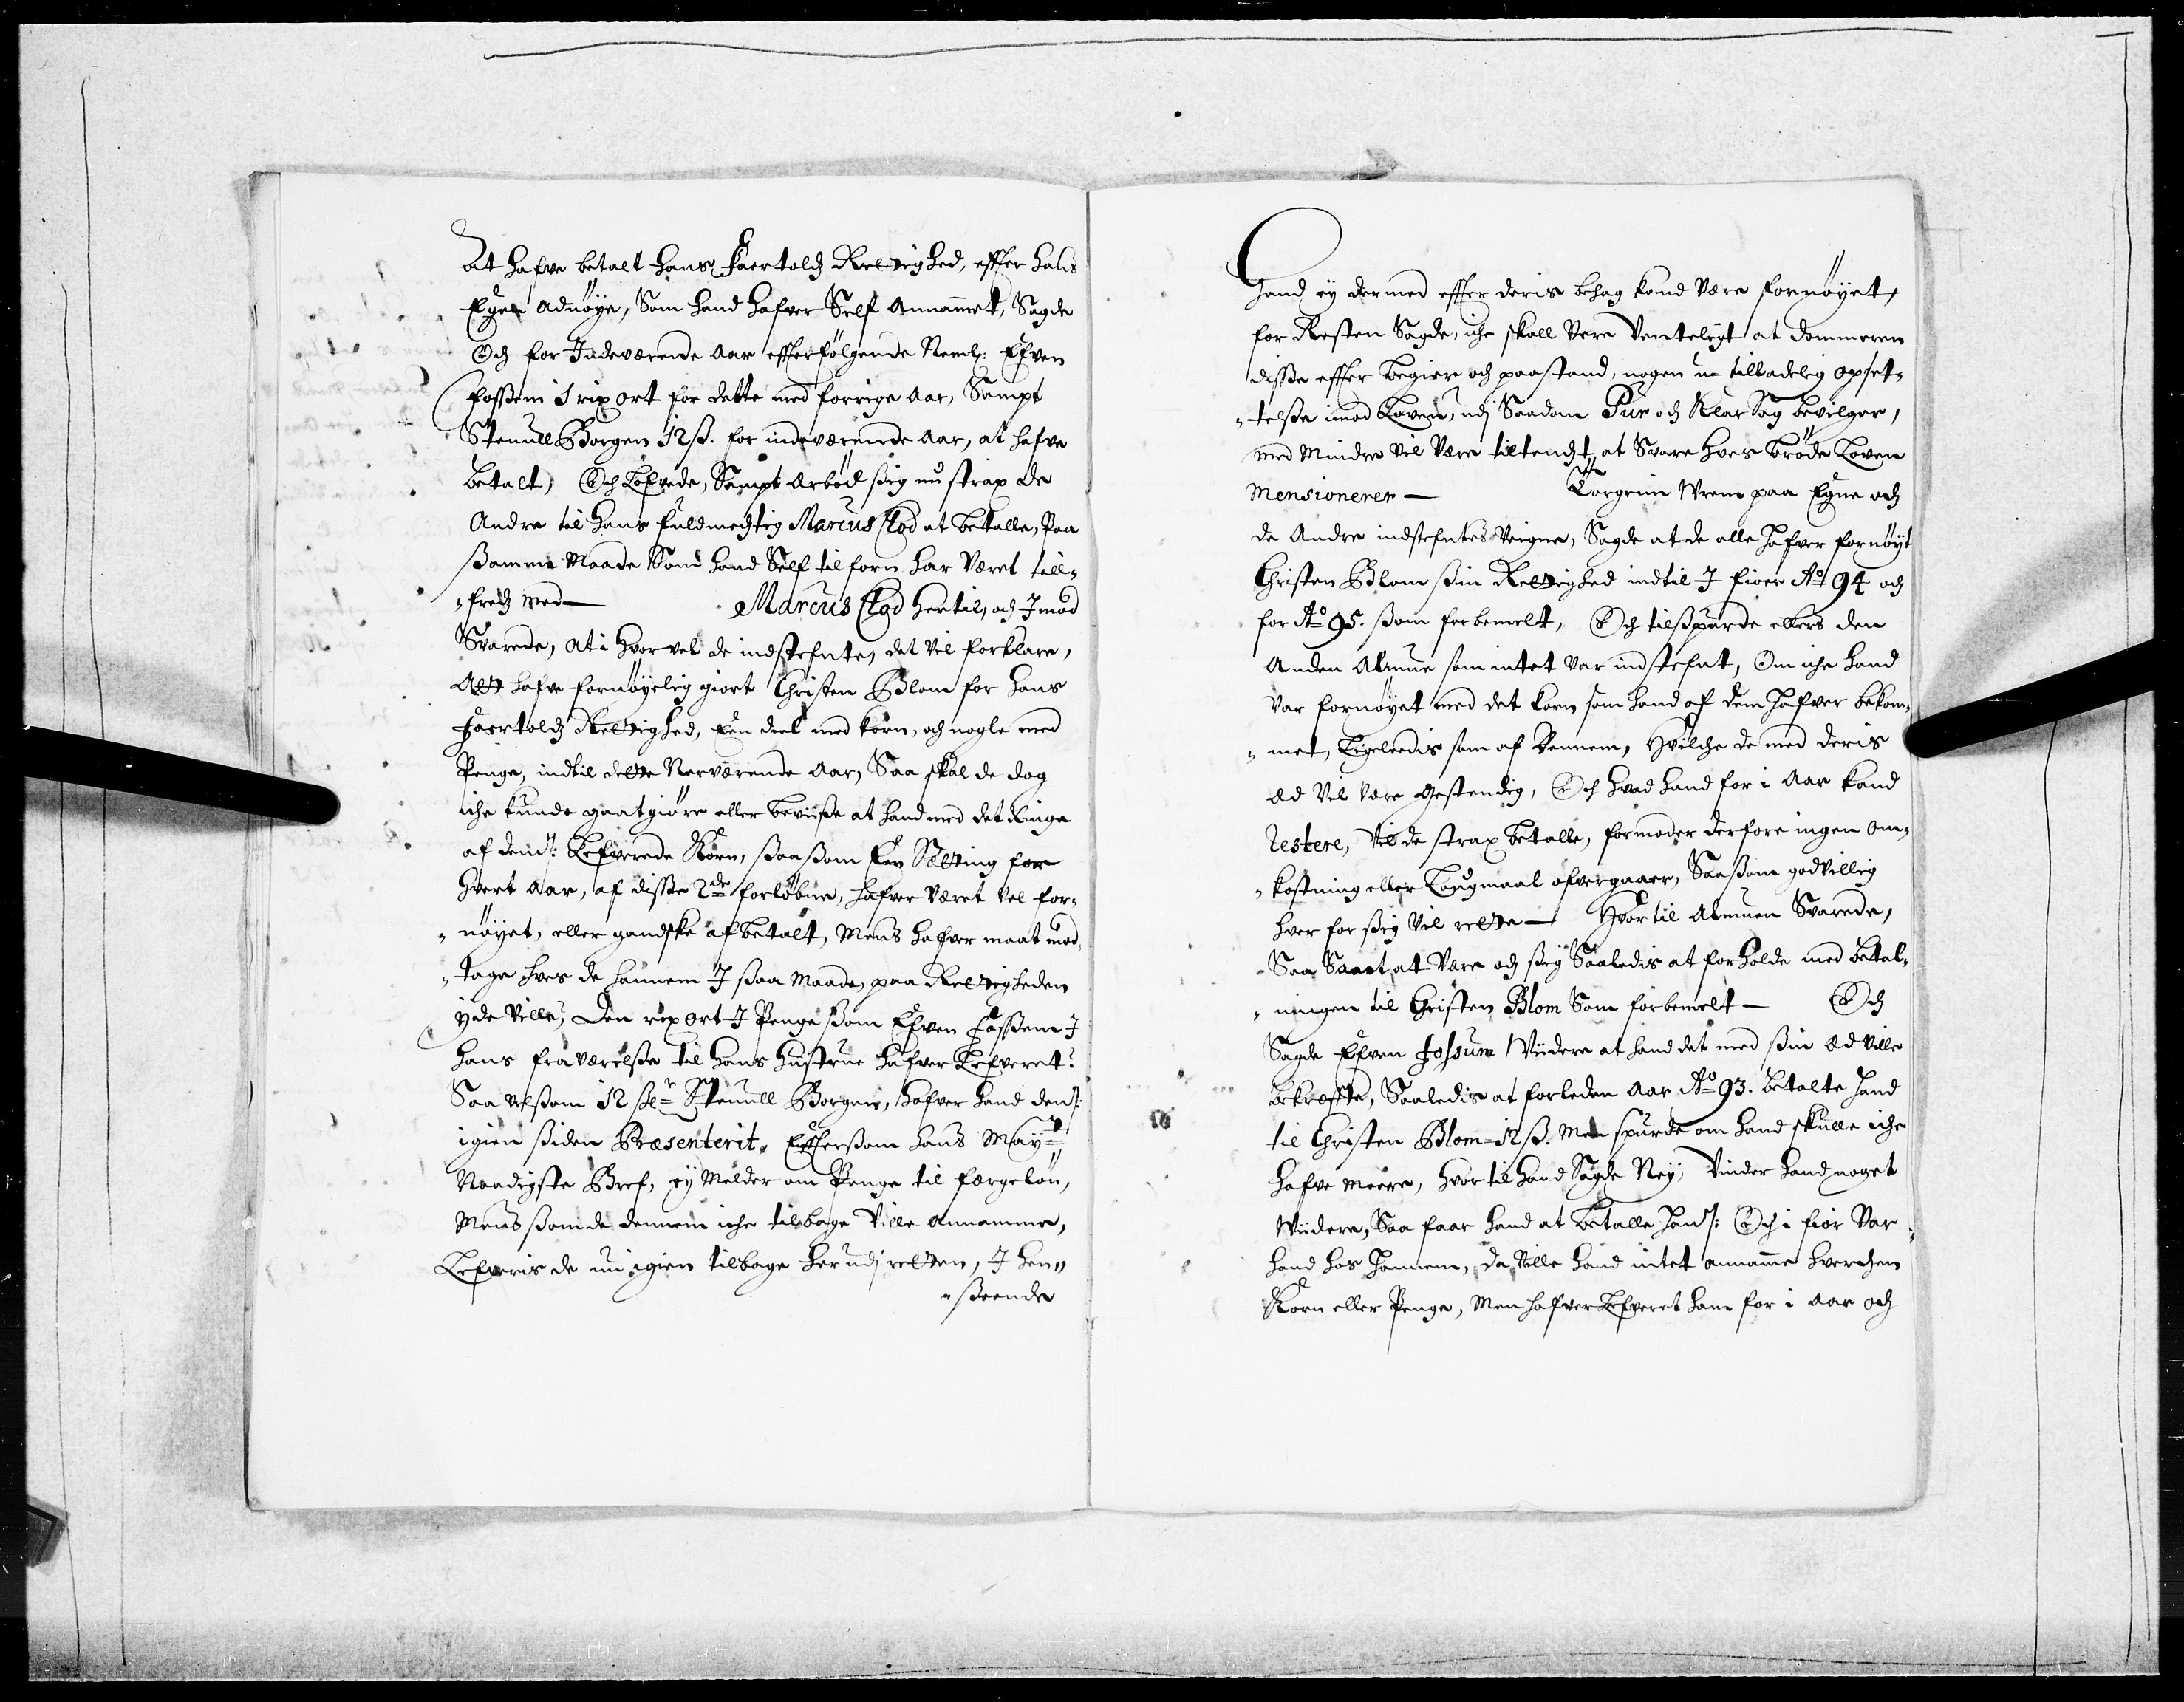 At hafve betalt hans Faertolds Rettighed, effter hans
Egen adnöye, Som hand hafver Self Annammet, Sagde
Och for Indeværende Aar efferfölgende Neml: Efven
Fossem 1 rix ort for dette med forrige Aar, Sampt
Stenull Borgen 12 ß. for indeværende Aar, at hafve
betalt, Och Lofvede, Sampt Erböd ßig nu strax de
Andre til hans fuldmegtig Marcus Clod at betalle, Paa
ßamme Maade Som hand Self tilforn har Været till-
freds med — Marcus Clod hertil, och Imod
Svarede, at i hvorvel de indstefnte, det vil forklare,
At hafve fornöyelig giort Christen Blom for hans
Faertolds Rettighed, Een deel med korn, och nogle med
Penge, indtil dette Nerværende Aar, Saa skal de dog
iche kunde gaatgiöre eller beviiße at hand med det Ringe
af dem: Lefverede Korn, ßaaßom Een Setting for
hvert Aar, af diße 2de forlöbne, hafver Været Vel for-
nöyet, eller gandske afbetalt, Mens hafver maat mod
tage hves de hannem I ßaa Maade, paa Rettigheden
yde Ville, Den rix ort I Penge ßom Efven Foßem I
hans fraværelße til hans hustrue hafver Lefveret
Saa velßom 12 ßl. Stenull Borgen, hafver hand dem:
igien ßiden Præsenterit, Efferßom hans Mayts
Naadigste Bref, ey Melder om Penge til færgelön,
Mens ßom de dennem iche tilbage Ville annamme,
Lefveris de nu igien tilbage her udj retten, I hen
ßeende
Hand ey dermed effter deris behag kand være fornöyet,
for Resten Sagde, iche skall Vere Venteligt at dommeren
diße effter begiere och paastand, nogen u-tilladelig opset-
telße imod Loven, udj Saadan Pur och Klar Sag bevilger,
med Mindre Vil Være tiltengt, at Svare hves bröde Loven
Mensionerer — Torgrim Vrem paa Egne och
de Andre indstefntes Veigne, Sagde at de alle hafver fornöyt
Christen Blom ßin Rettighed indtil I fioer Ao 94 och
for Ao 95. ßom forbemelt, Och tilspurde ellers den
Anden Almue som intet var indstefnt, Om iche hand
var fornöyet med det korn som hand af dem hafver bekom-
met, Ligeleedis som af dennem, Hvilche de med deris
Æd Vil være gestendig, Och hvad hand for i Aar kand
restere, Vil de strax betalle, formoder derfore ingen om-
kostning eller Laugmaal ofvergaaer, Saaßom godvillig
hver for ßig Vil rette — Hvortil Almuen Svarede,
Saa Sandt at Være och ßig Saaledis at forholde med betal-
ningen til Christen Blom Som forbemelt — Och
Sagde Efven Fossum Viidere at hand det med ßin Æd Ville
bekræffte, Saaledis at forleden Aar Ao 93. betalte hand
til Christen Blom 12 ß. Men spurde om hand skulle iche
hafve meere, hvortil hand Sagde Ney, Vinder hand noget
Viidere, Saa faar hand at betalle ham: Och i fior Var
hand hos hannem, da Ville hand intet annamme hverchen
Korn eller Penge, Men hafver Lefveret ham for i Aar och